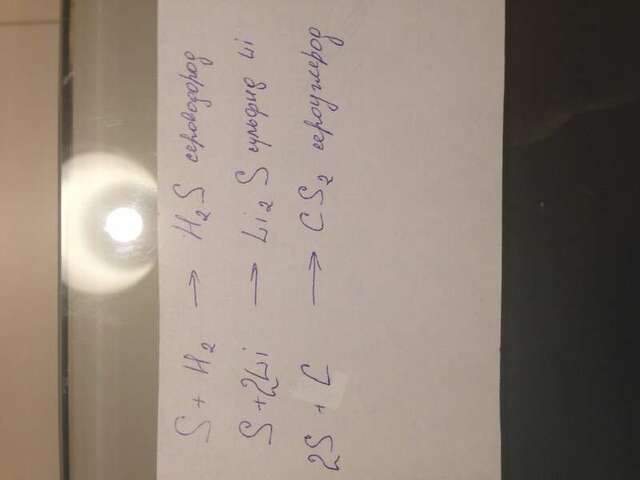 S + H₂ → H₂S сероводород
S + 2Li → Li₂S сульфид Li
2S + C → CS₂ сероуглерод